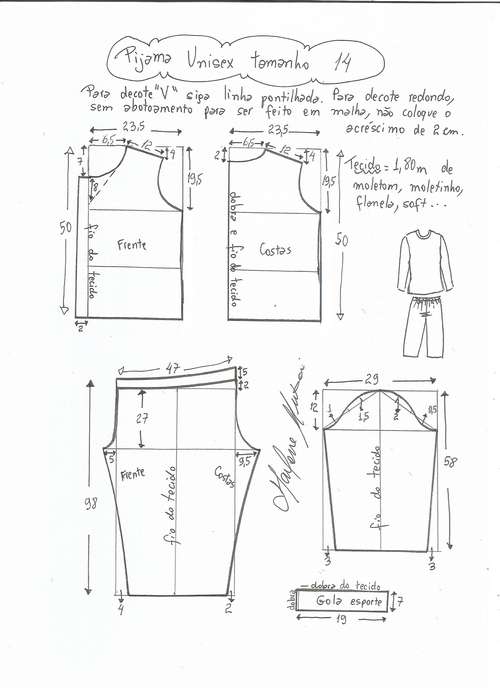 Pijama Unisex tamanho 14
Para decote "V" siga linha pontilhada. Para decote redondo,
sem abotoamento para ser feito em malha, não coloque o
acréscimo de 2 cm.
23,5
6,5
12
4
7
8
19,5
50
fio do tecido
Frente
2
23,5
6,5
12
4
2
19,5
50
dobra e fio do tecido
Costas
Tecido = 1,80m de
moletom, moletinho,
flanela, soft...
47
5
2
27
98
5
9,5
Frente
Costas
fio do tecido
4
2
29
12
1
1,5
2
0,5
58
fio do tecido
3
3
dobra do tecido
dobra
Gola esporte
7
19